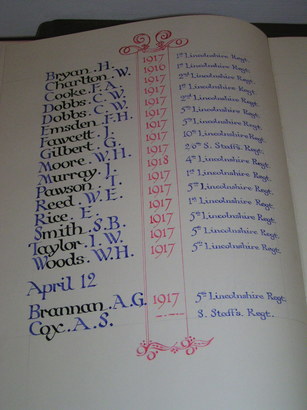 Bryan . H. 1917 1st Lincolnshire Regt.
Charlton . W. 1916 1st Lincolnshire Regt.
Cooke . F. A. 1917 2nd Lincolnshire Regt.
Dobbs . C. W. 1917 1st Lincolnshire Regt.
Dobbs . C. W. 1917 2nd Lincolnshire Regt.
Emsden . F. H. 1917 5th Lincolnshire Regt.
Fawcett . J. 1917 5th Lincolnshire Regt.
Gilbert . G. 1917 10th Lincolnshire Regt.
Moore . W. H. 1917 2/6th S. Staffs. Regt.
Murray . J. 1918 4th Lincolnshire Regt.
Pawson . I. 1917 1st Lincolnshire Regt.
Reed . W. E. 1917 5th Lincolnshire Regt.
Rice . E. 1917 1st Lincolnshire Regt.
Smith . S. B. 1917 5th Lincolnshire Regt.
Taylor . I. W. 1917 5th Lincolnshire Regt.
Woods . W. H. 1917 5th Lincolnshire Regt.
April 12
Brannan . A. G. 1917 5th Lincolnshire Regt.
Cox . A. S. S. Staffs. Regt.